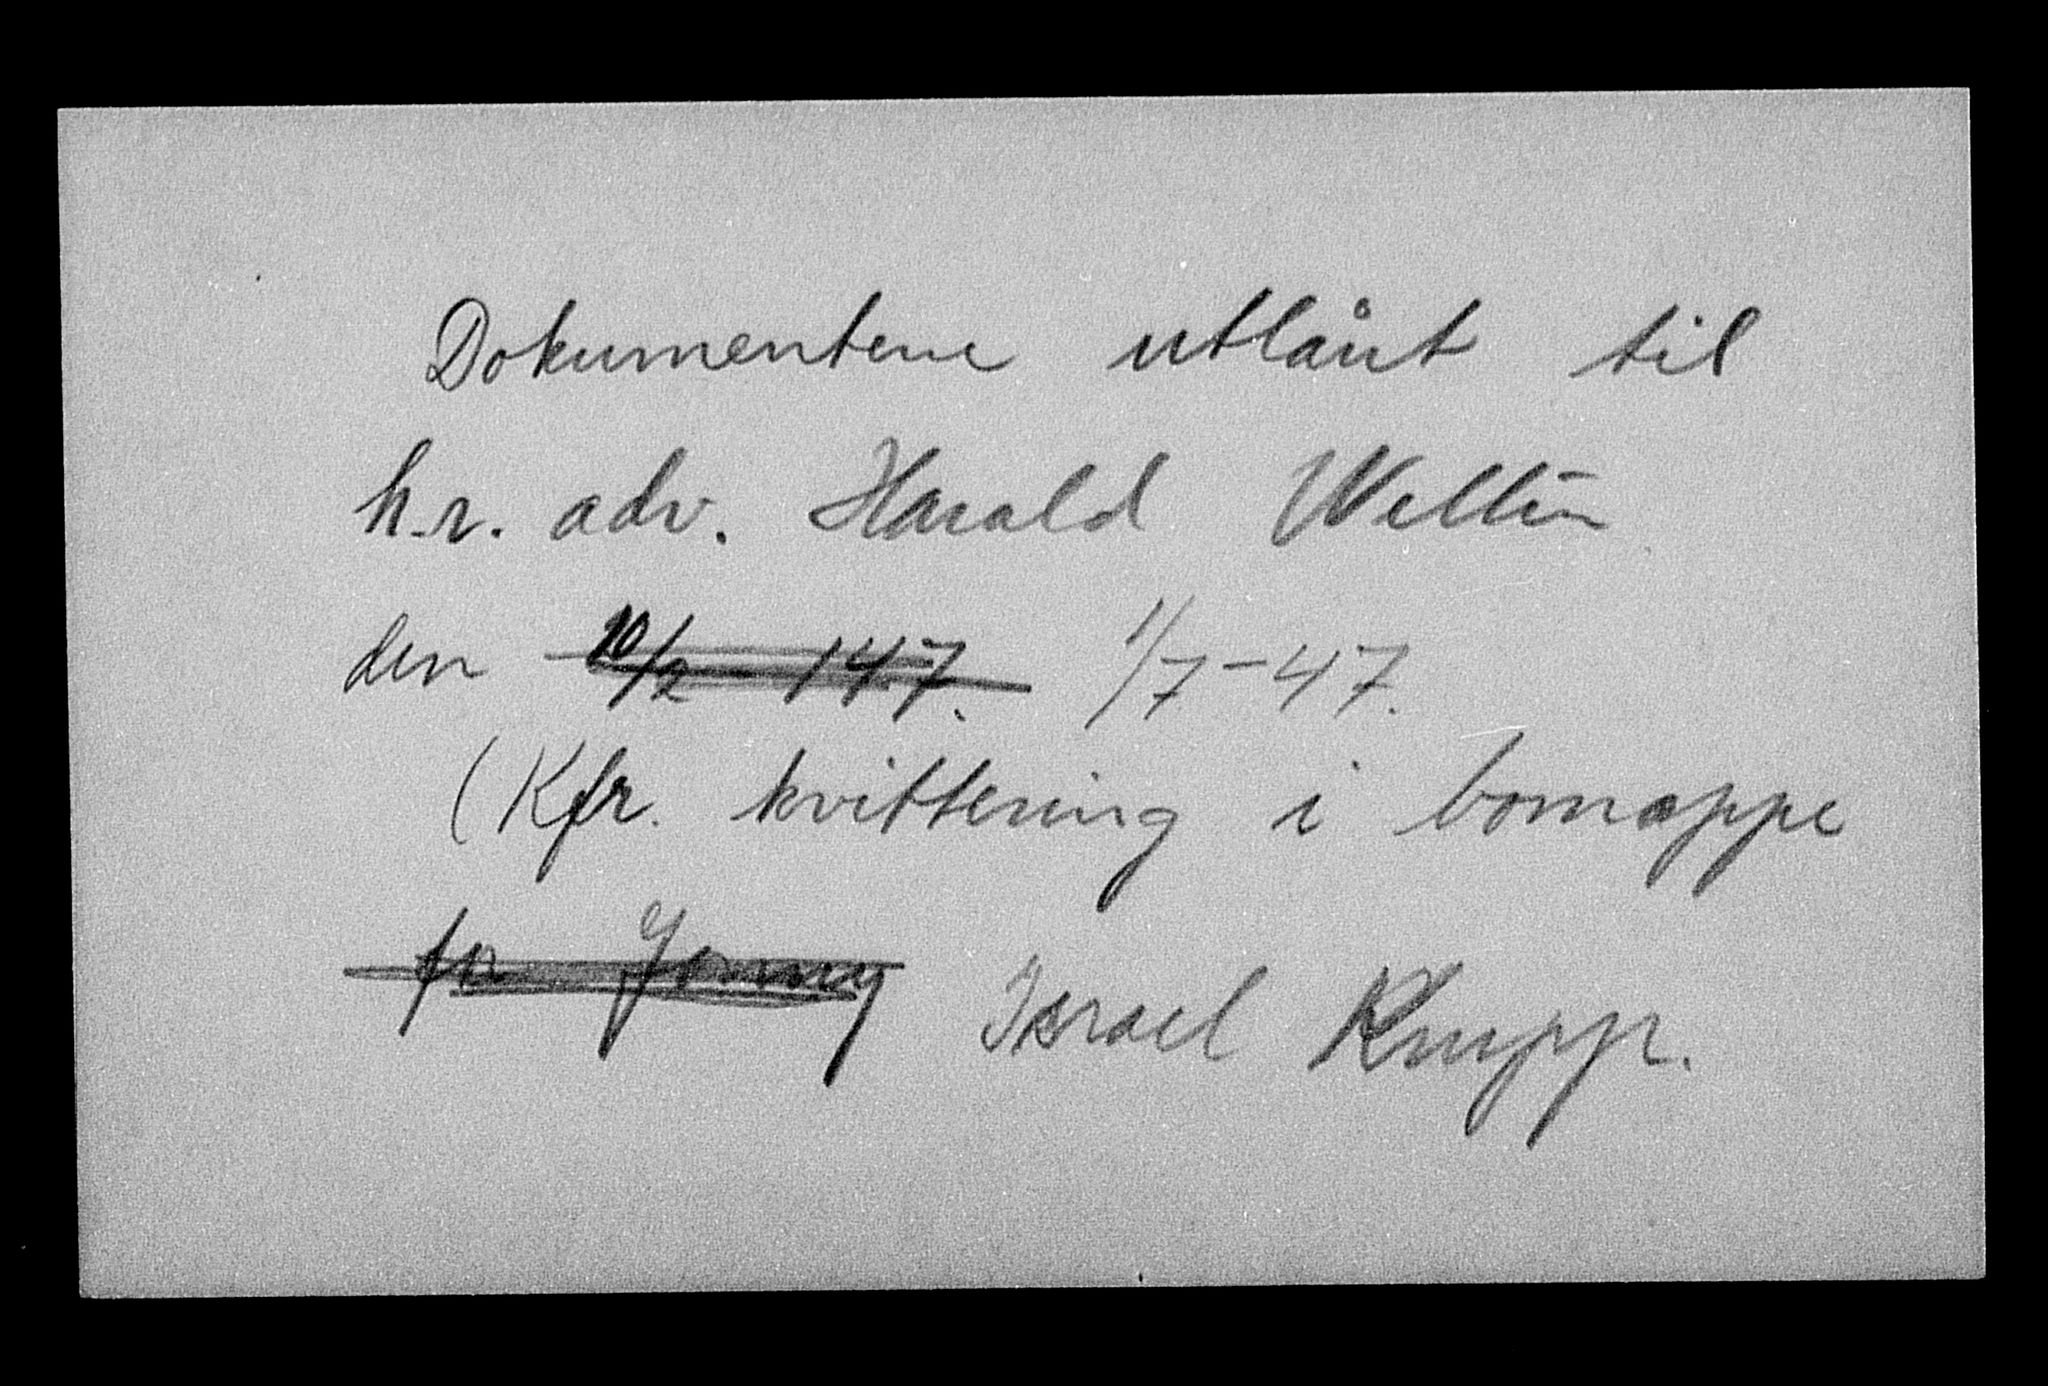 Dokumentene utlånt til
h.r. adv. Harald
den 10/2 147. 1/7-47.
(Kfr. kvittering i bomappe
for Israel Krupp.